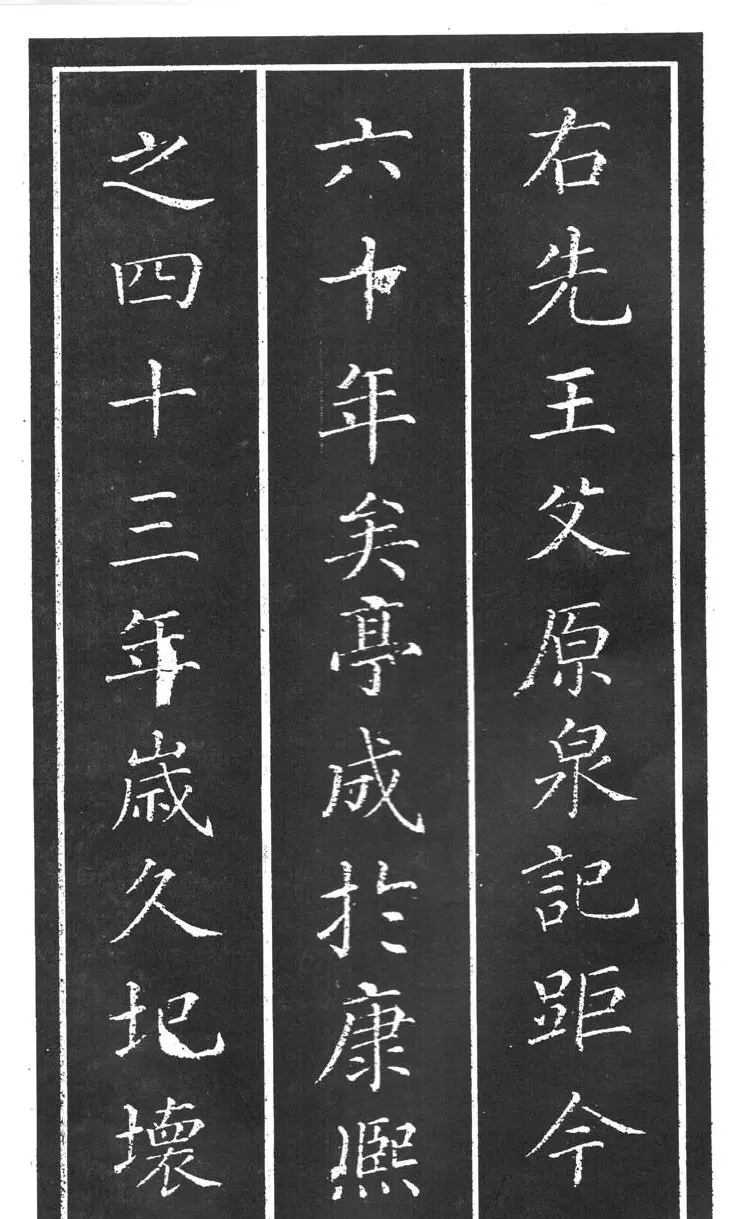 右先王父原泉記距今
六十年矣亭成於康熙
之四十三年歲久圮壞